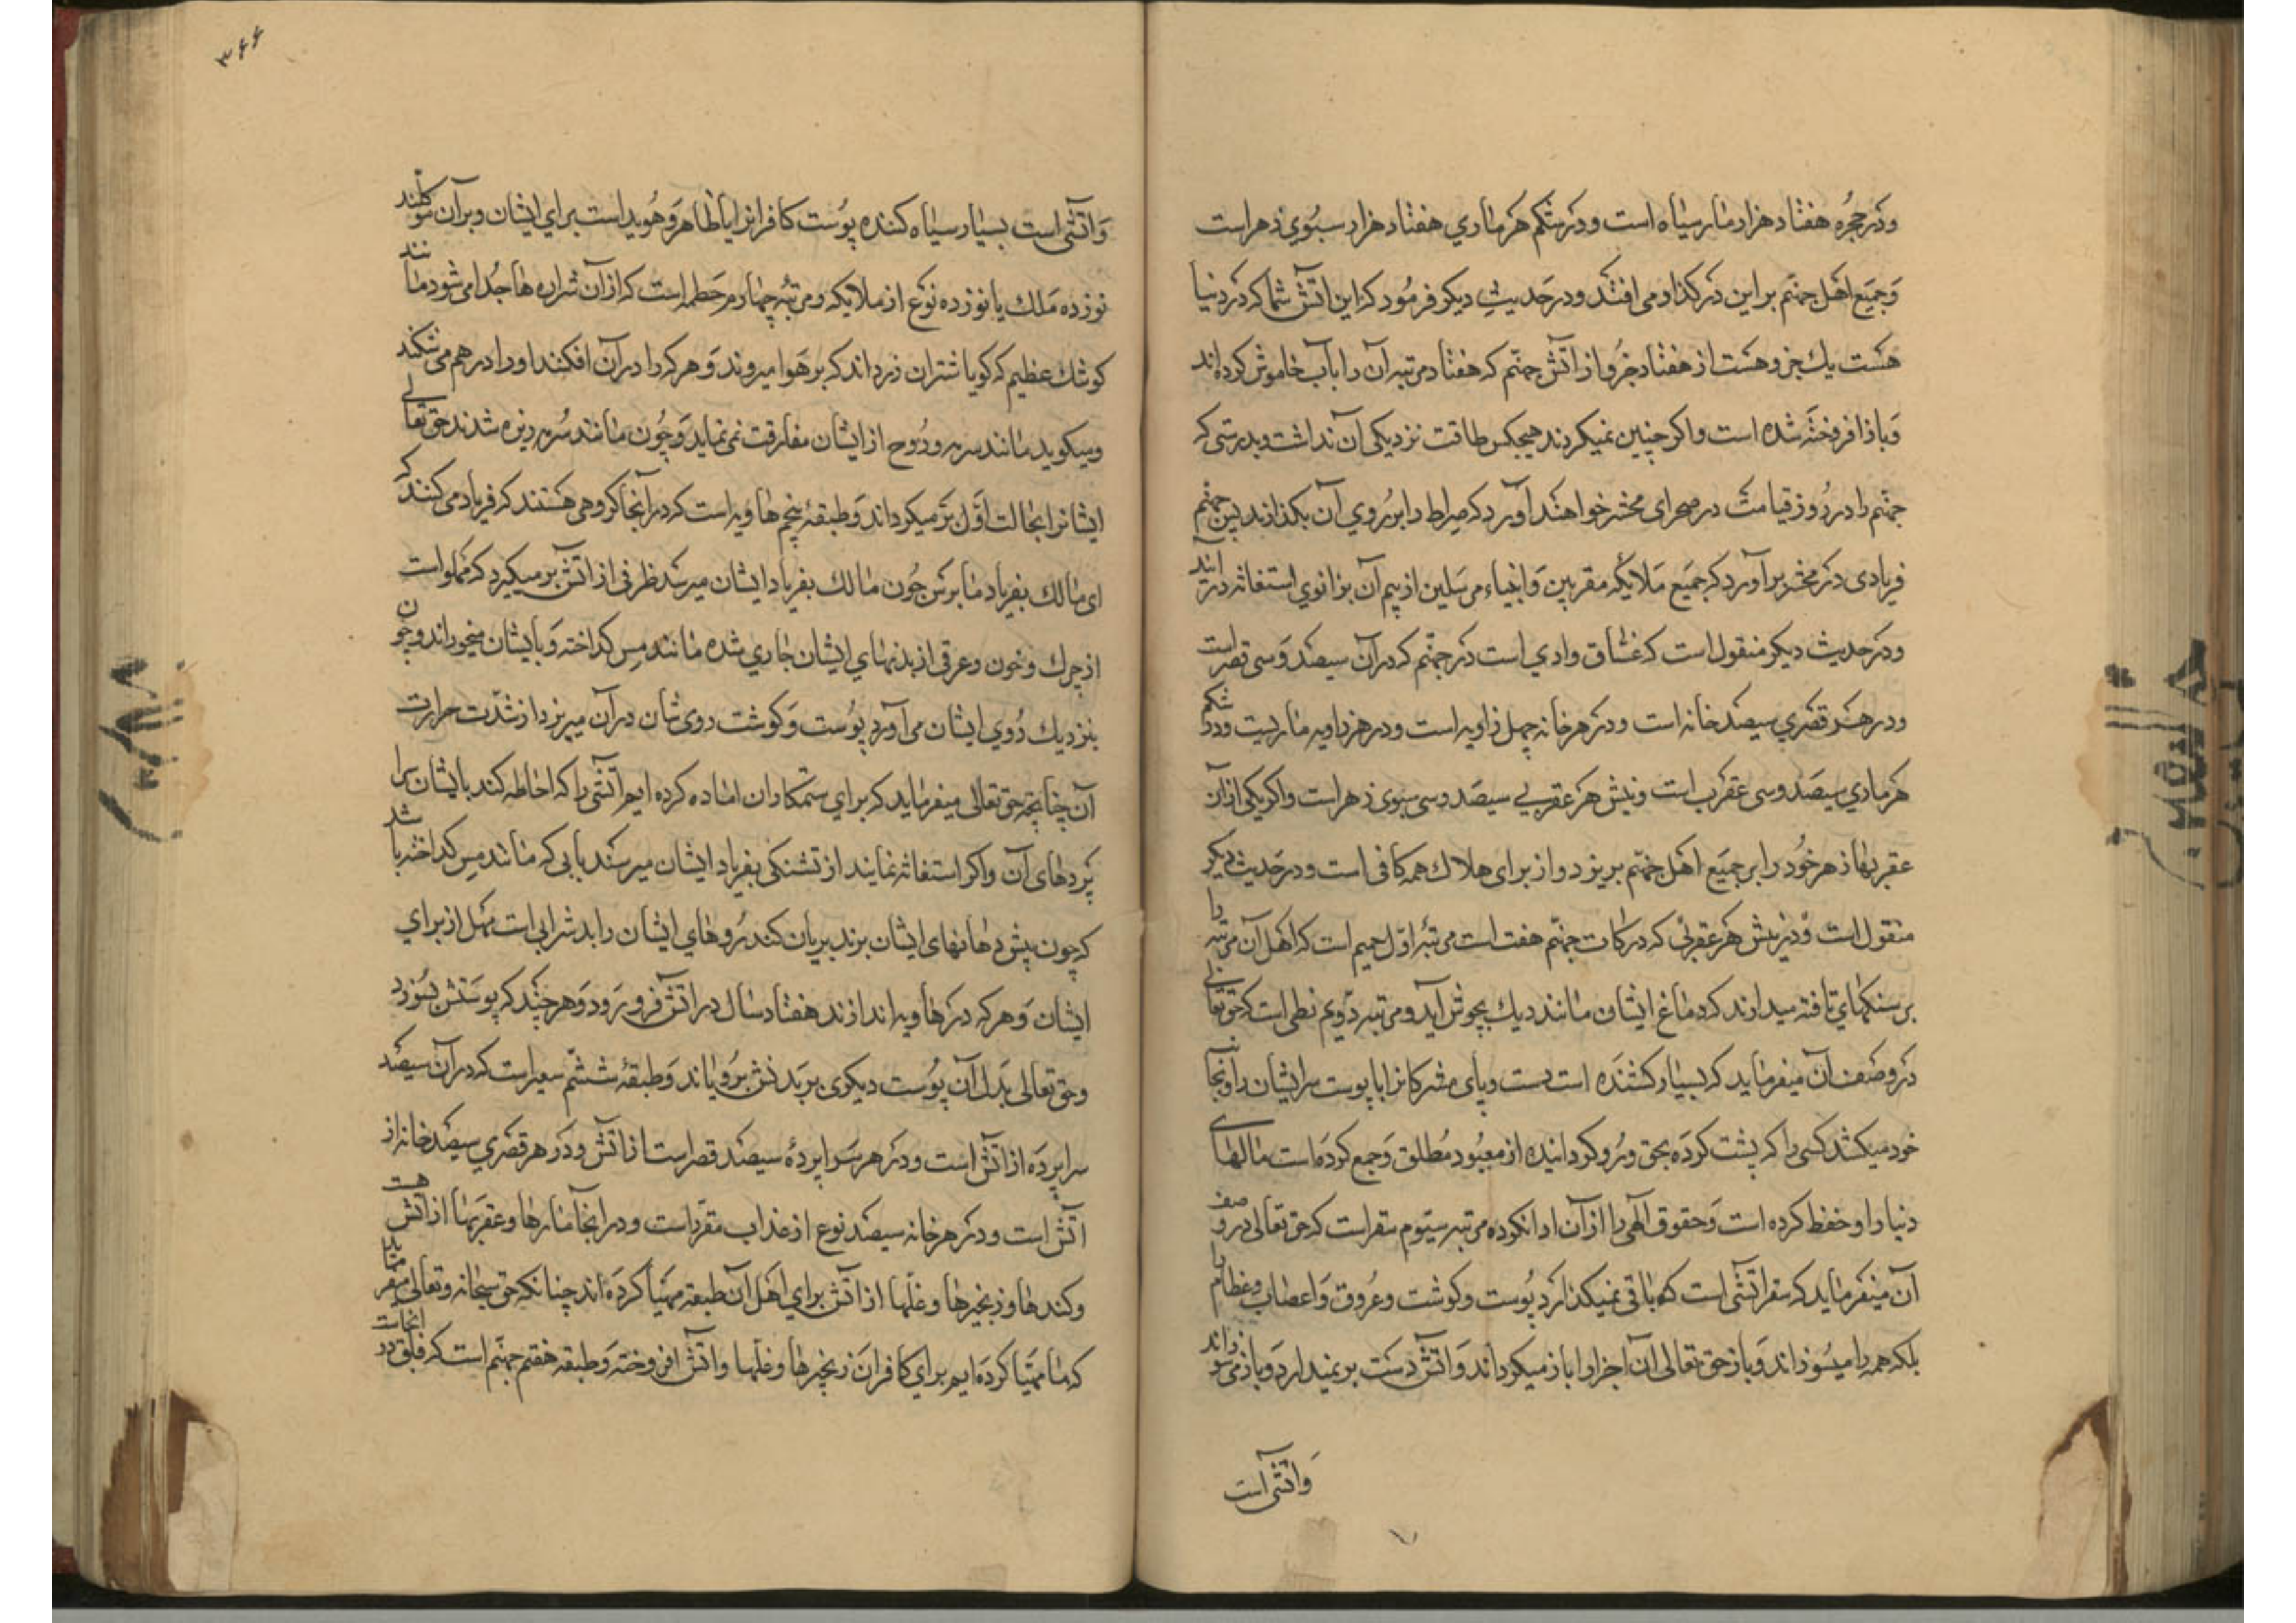 ودر حجره هفتاد هزار مار سیاه است ودر شکم هر ماری هفتاد هزار سبوی زهر است
وجمیع اهل جهنم بر این درکذار می افتند ودر حدیث دیکر فرمود که این اتش شما که در دنیا
هست یك جزو هست از هفتاد جزو از اتش جهنم که هفتاد مرتبه آن را باب خاموش کرده اند
وباز افروخته شده است واکر چنین نمیکردند هیچکس طاقت نزدیکی آن نداشت وبدرستی که
جهنم را در روز قیامت در صحرای محشر خواهند آورد که صراط را بر روی آن بکذارند پس جهنم
فریادی در محشر برآورد که جمیع ملایکه مقربین وانبیاء مرسلین از بیم آن بزانوی استغاثه درآیند
ودر حدیث دیکر منقول است که غساق وادی است در جهنم که در آن سیصد وسی قصر است
ودر هر قصری سیصد خانه است ودر هر خانه چهل زاویه است ودر هر زاویه ماریست ودر شکم
هر ماری سیصد وسی عقرب است ونیش هر عقربی سیصد وسی سبوی زهر است واکر یکی از آن
عقربها زهر خود را بر جمیع اهل جهنم بریزد از برای هلاك همه کافی است ودر حدیث دیکر
منقول است ودر نیش هر عقربی که درکات جهنم هفت است مرتبه اول جحیم است که اهل آن مرتبه را
بر سنکهای تافته میدارند که دماغ ایشان مانند دیك بجوش آید ومرتبه دویم لظی است که حق تعالی
در وصف آن میفرماید که بسیار کشنده است دست وپای مشرکانرا با پوست سر ایشان را وبجانب
خود میکشد کسی را که پشت کرده بحق ورو کردانیده از معبود مطلق وجمع کرده است مالهای
دنیا را وحفظ کرده است وحقوق الهی را از آن ادا نکرده مرتبه سیوم سقر است که حق تعالی در وصف
آن میفرماید که سقر اتشی است که باقی نمیکذارد پوست وکوشت وعروق واعصاب وعظام را
بلکه همه را میسوزاند وباز حق تعالی آن اجزا را باز میکرداند واتش دست بر نمیدارد وباز میسوزاند
واتشی است
۳۶۶
واتشی است بسیار سیاه کننده پوست کافرانرا یا ظاهر وهویداست برای ایشان وبر آن موکلند
نوزده ملك یا نوزده نوع از ملایکه ومرتبه چهارم حطمه است که از آن شراره ها جدا می شود مانند
کوشك عظیم که کویا شتران زرد اند که بر هوا میروند وهرکه را در آن افکنند او را در هم می شکند
ومیکوبد مانند سرمه وروح از ایشان مفارقت نمی نماید وچون مانند سرمه ریزه شدند حق تعالی
ایشانرا بحالت اول بر میکرداند وطبقه پنجم هاویه است که در آنجا کروهی هستند که فریاد می کنند که
ای مالك بفریاد ما برس چون مالك بفریاد ایشان میرسد ظرفی از اتش بر میکیرد که مملو است
از چرك وخون وعرقی از بدنهای ایشان جاری شده مانند مس کداخته وبایشان میخوراند وچون
بنزدیك روی ایشان می آورد پوست وکوشت روی شان در آن میریزد از شدت حرارت
آن چنانچه حق تعالی میفرماید که برای ستمکاران اماده کرده ایم اتشی را که احاطه کند بایشان سرا
پردهای آن واکر استغاثه نمایند از تشنکی بفریاد ایشان میرسند بابی که مانند مس کداخته باشد
که چون پیش دهانهای ایشان برند بریان کند روهای ایشان را بد شرابی است مهل از برای
ایشان وهر که در هاویه اندازند هفتاد سال در اتش فرو رود وهر چند که پوستش بسوزد
وحق تعالی بدل آن پوست دیکری بر بدنش برویاند وطبقه ششم سعیر است که در آن سیصد
سراپرده از اتش است ودر هر سراپرده سیصد قصر است از اتش ودر هر قصری سیصد خانه از
اتش است ودر هر خانه سیصد نوع از عذاب مقرر است ودر انجا مارها وعقربها از اتش هست
وکندها وزنجیرها وغلها از اتش برای اهل آن طبقه مهیا کرده اند چنانکه حق سبحانه وتعالی میفرماید
که ما مهیا کرده ایم برای کافران زنجیرها وغلها واتش افروخته وطبقه هفتم جهنم است که فلق در انجاست